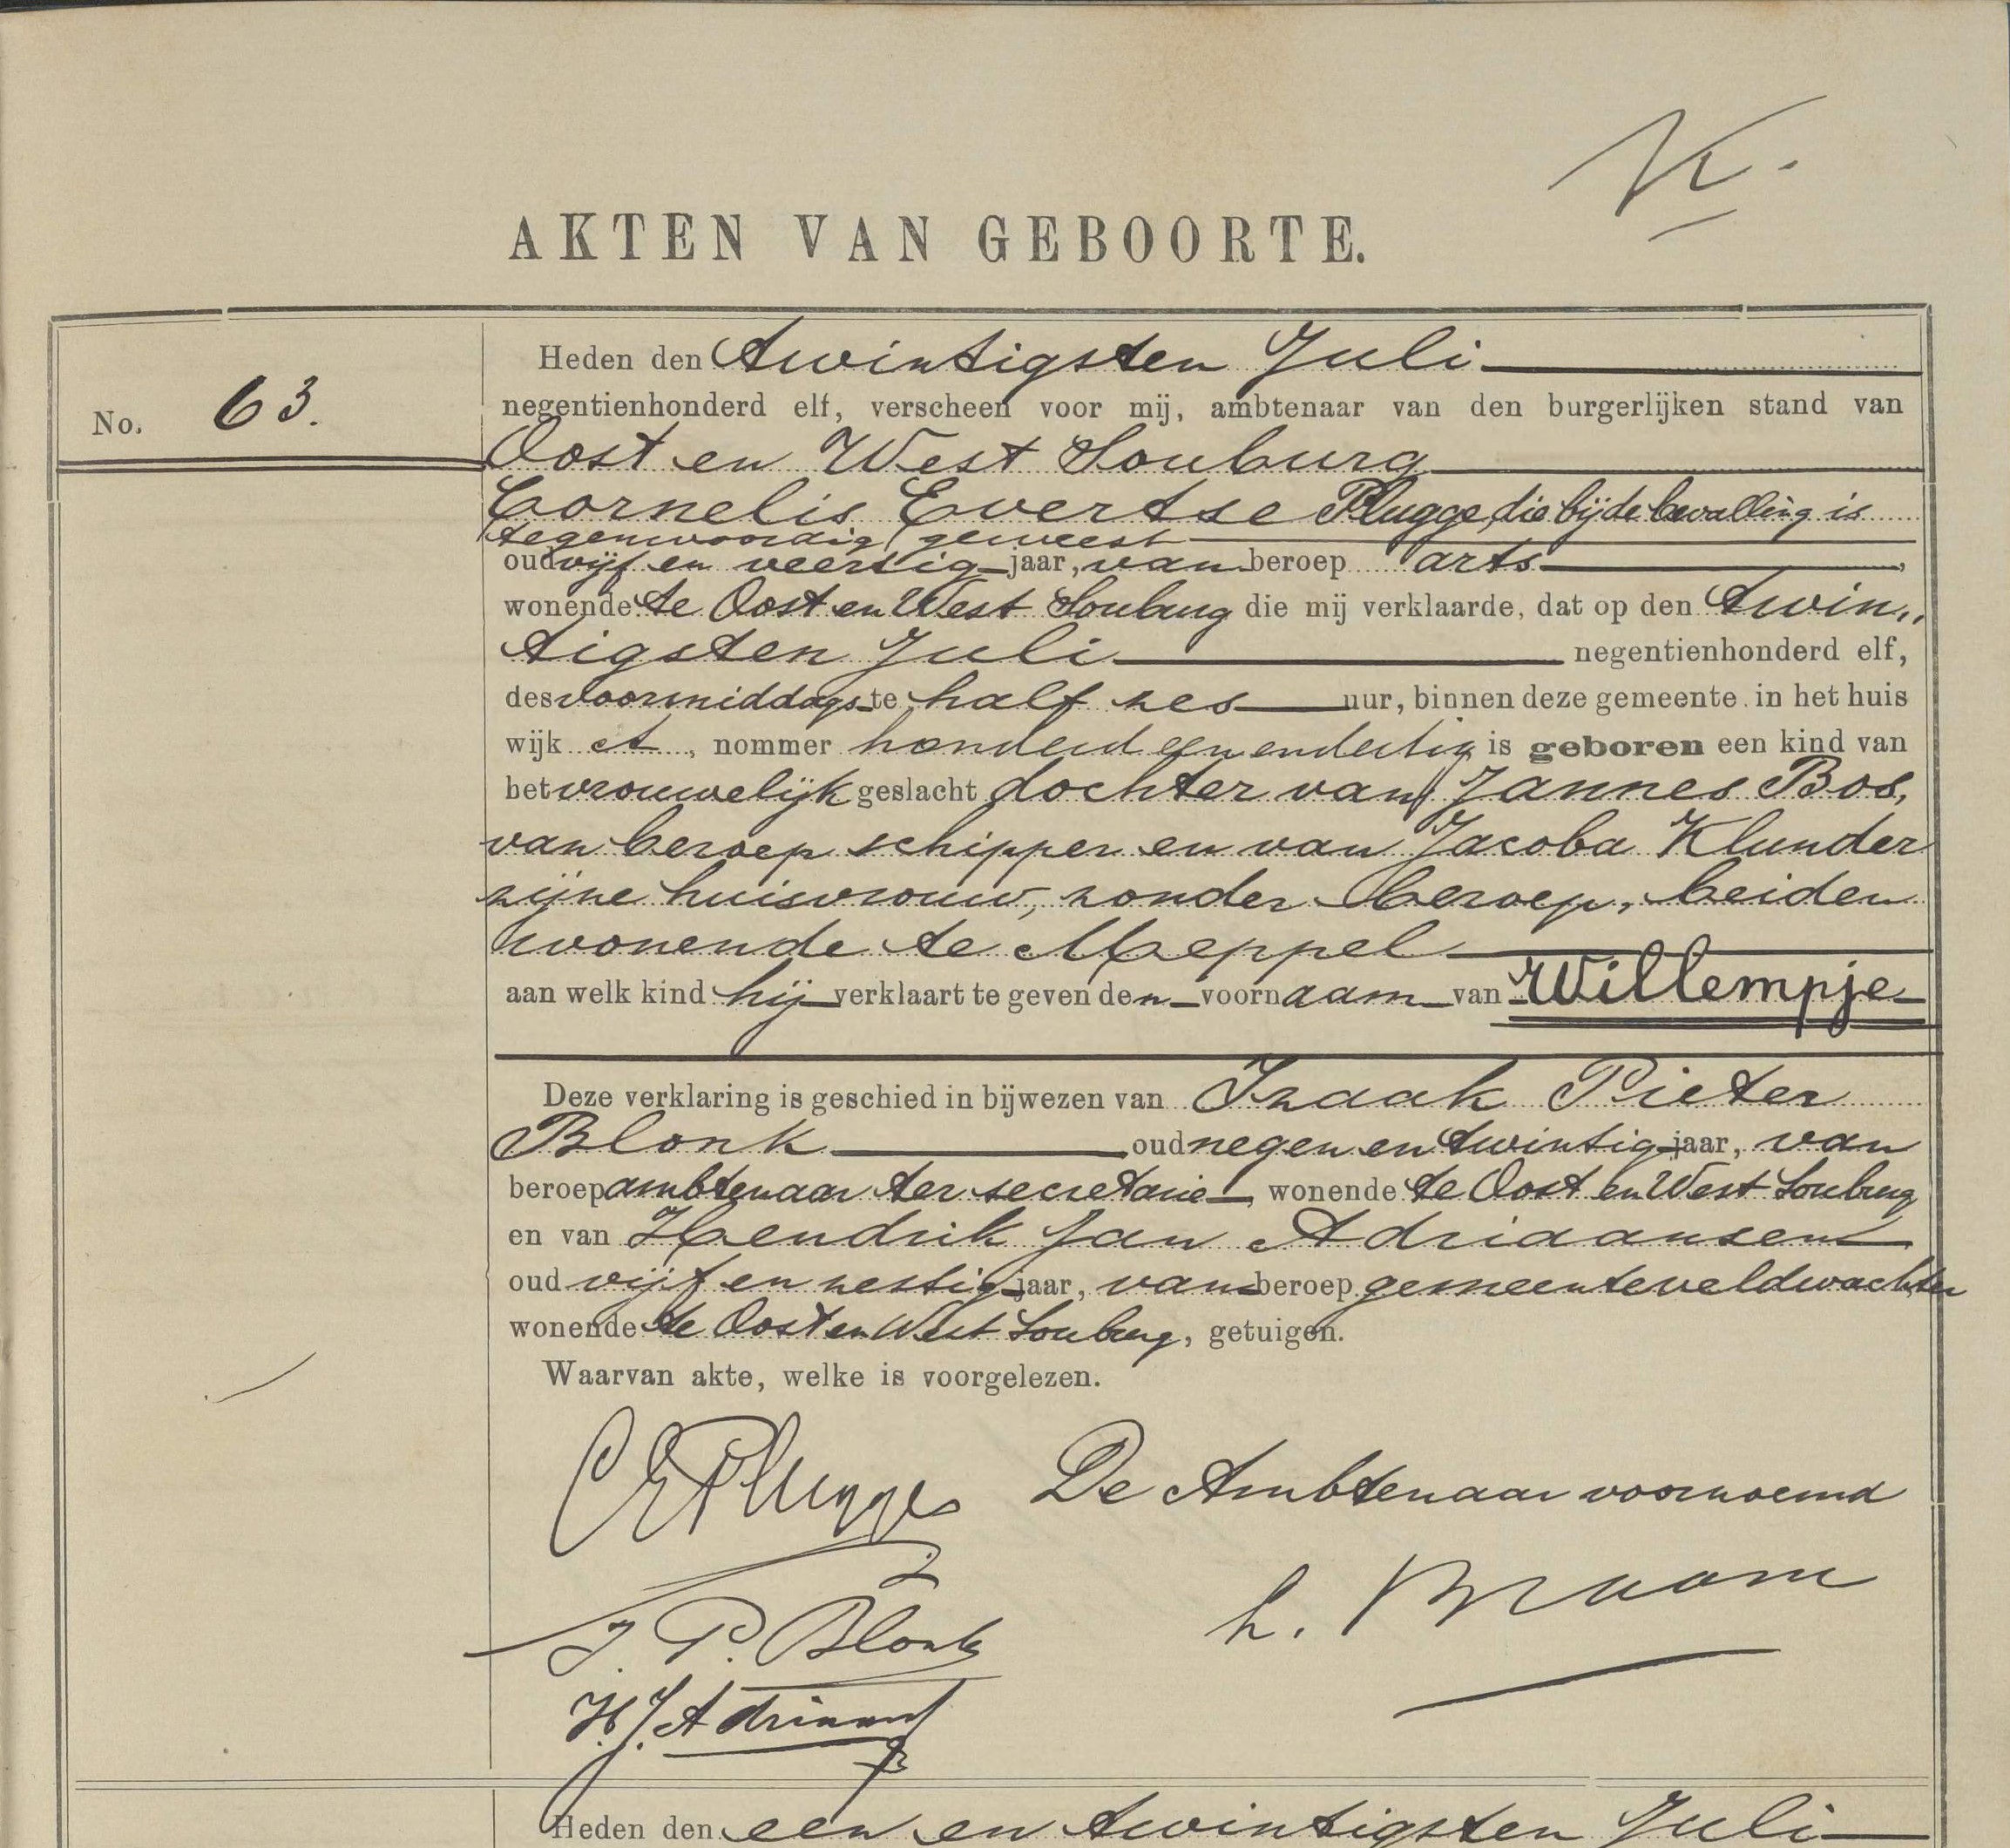 K.
AKTEN VAN GEBOORTE.
No. 63.
Heden den twintigsten Juli
negentienhonderd elf, verscheen voor mij, ambtenaar van den burgerlijken stand van
Oost en West Souburg
Cornelis Evertse Plugge, die bij de bevalling is
tegenwoordig geweest
oud vijf en veertig jaar, van beroep arts,
wonende te Oost en West Souburg die mij verklaarde, dat op den twin„
tigsten Juli negentienhonderd elf,
des voormiddags te half zes uur, binnen deze gemeente in het huis
wijk A, nommer honderd een en dertig is geboren een kind van
het vrouwelijk geslacht dochter van Jannes Bos,
van beroep schipper en van Jacoba Klunder
zijne huisvrouw, zonder beroep, beiden
wonende te Meppel
aan welk kind hij verklaart te geven den voornaam van Willempje
Deze verklaring is geschied in bijwezen van Izaak Pieter
Blonk oud negen en twintig jaar, van
beroep ambtenaar ter secretarie, wonende te Oost en West Souburg
en van Hendrik Jan Adriaansen
oud vijf en zestig jaar, van beroep gemeenteveldwachter
wonende te Oost en West Souburg, getuigen.
Waarvan akte, welke is voorgelezen.
CEPlugge De Ambtenaar voornoemd
J. P. Blonk
H. J. Adriaans
Heden den een en twintigsten Juli